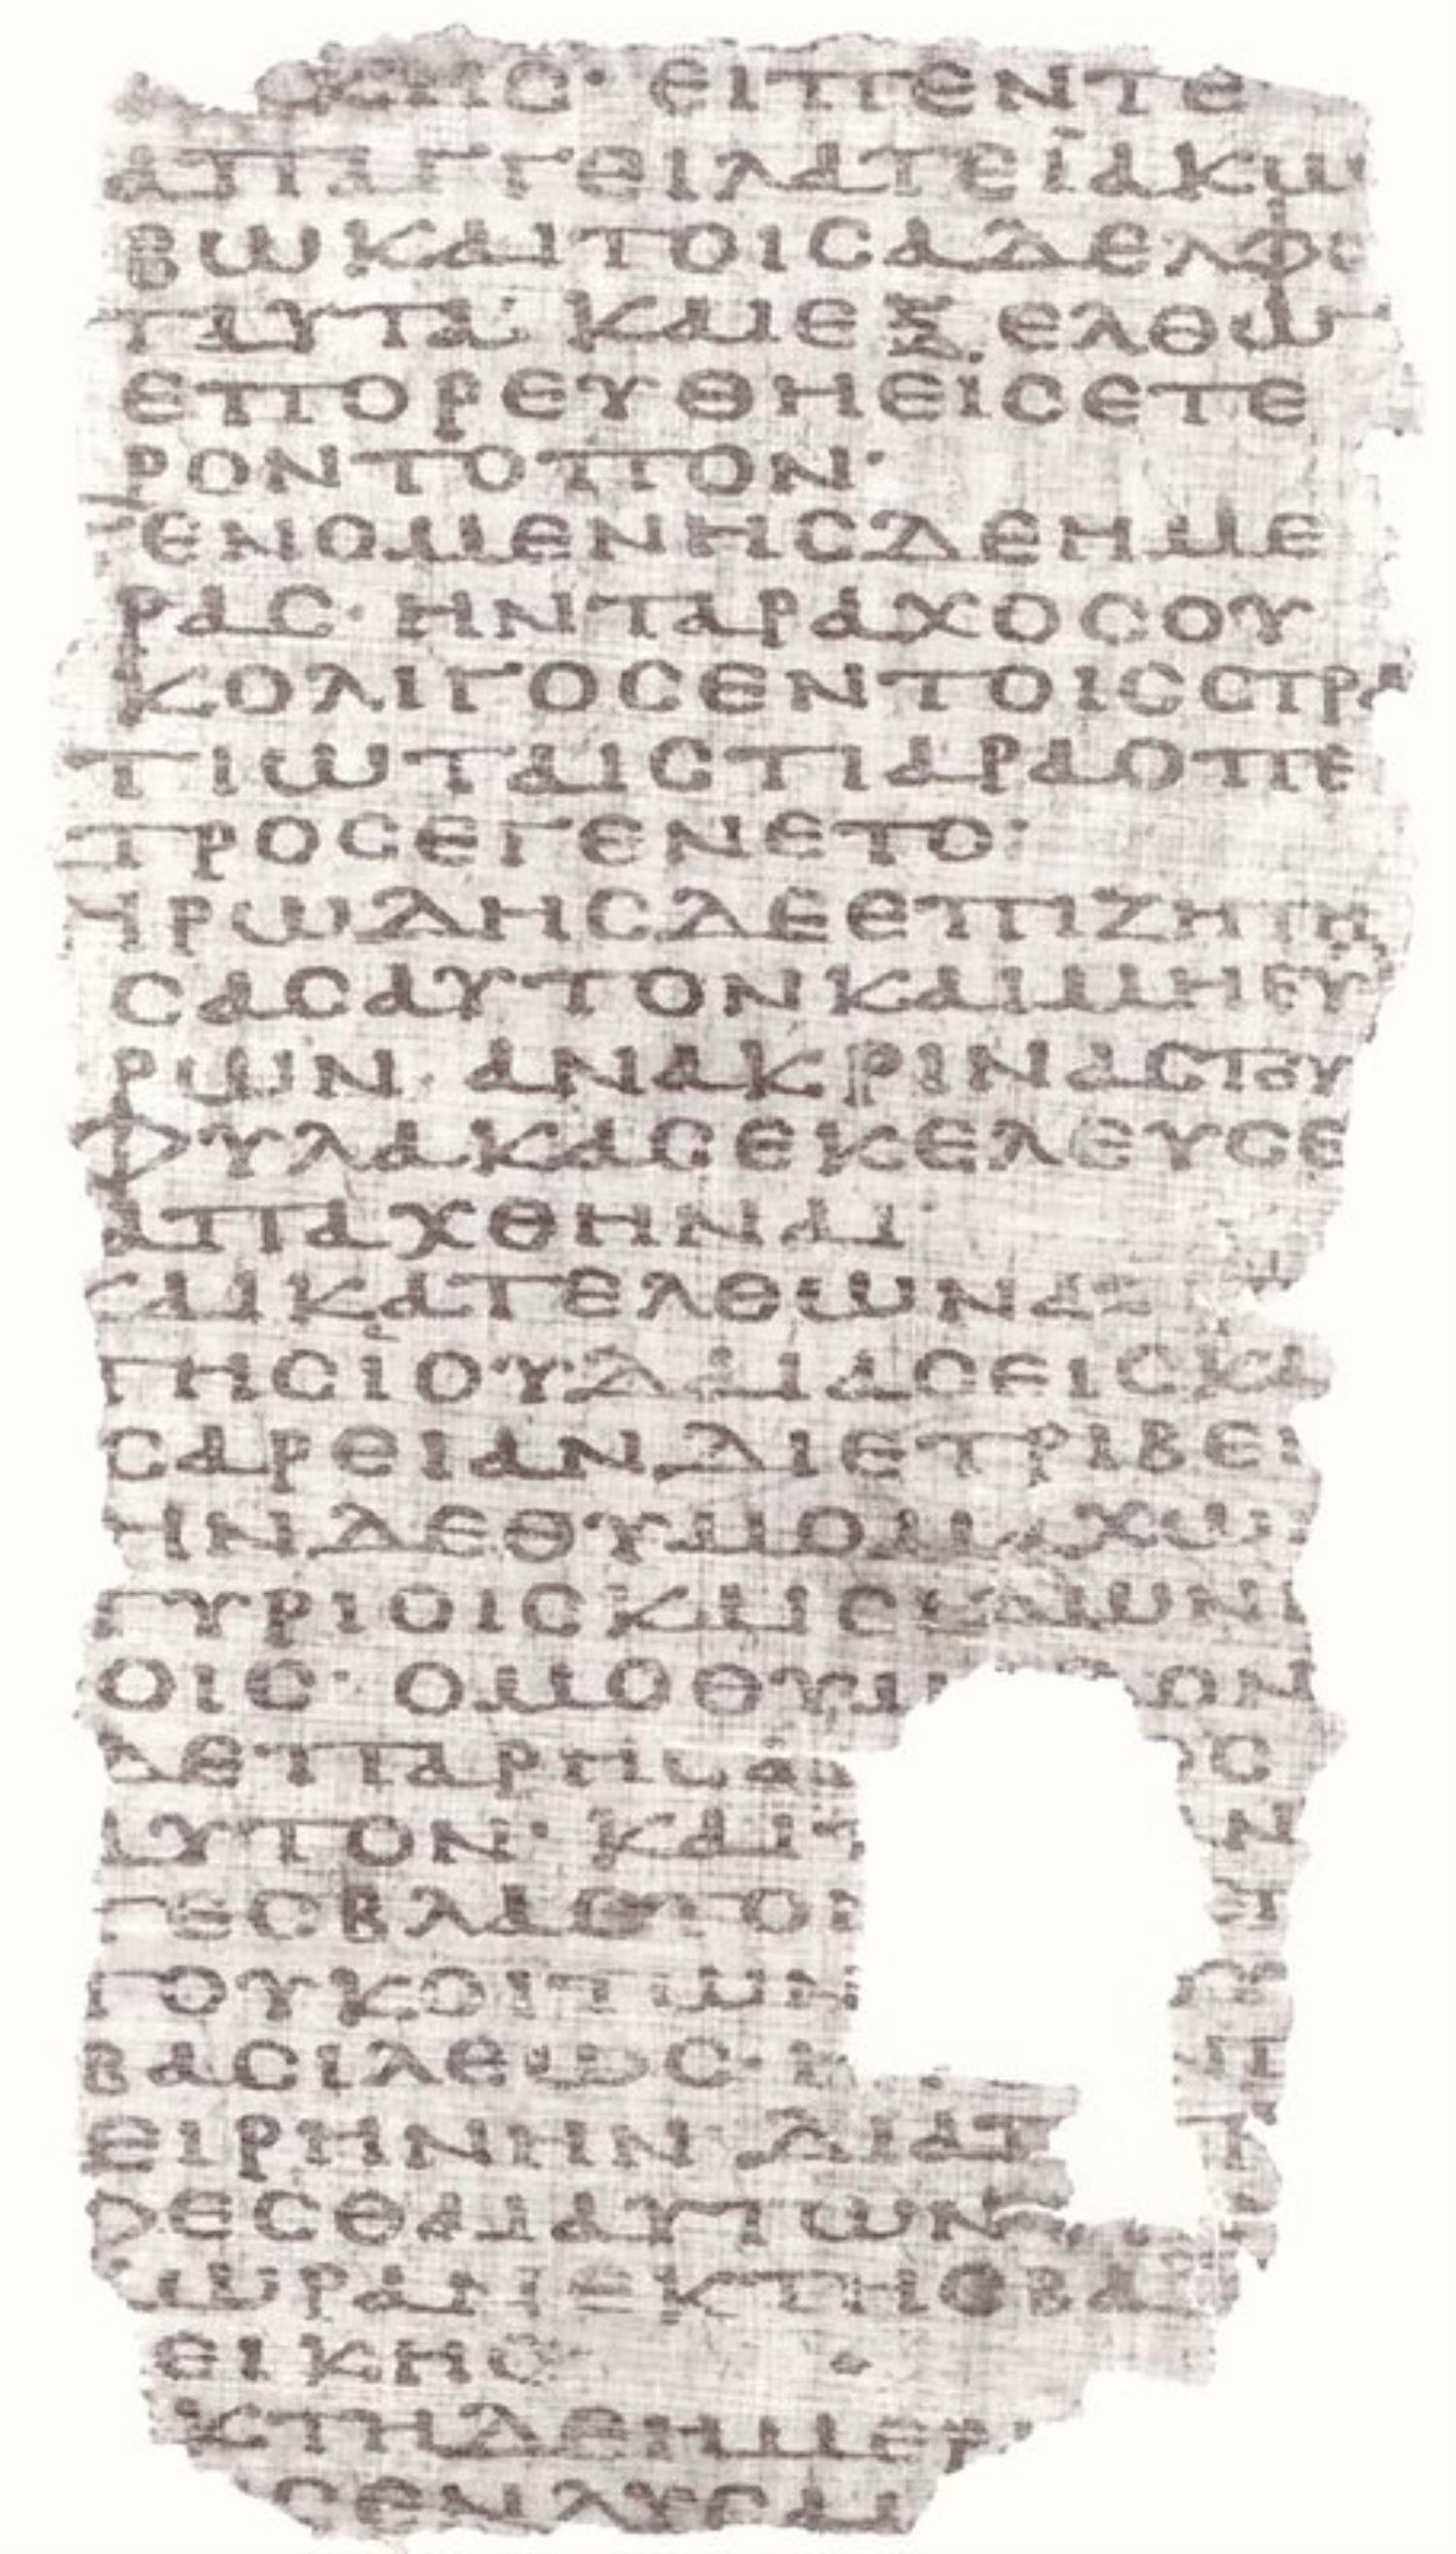 ΚΗϹ· ΕΙΠΕΝ ΤΕ
ΑΠΑΓΓΕΙΛΑΤΕ ΪΑΚΩ
ΒΩ ΚΑΙ ΤΟΙϹ ΑΔΕΛΦΟ
ΤΑΥΤΑ· ΚΑΙ ΕΞΕΛΘΩ
ΕΠΟΡΕΥΘΗ ΕΪϹ ΕΤΕ
ΡΟΝ ΤΟΠΟΝ·
ΓΕΝΟΜΕΝΗϹ ΔΕ ΗΜΕ
ΡΑϹ· ΗΝ ΤΑΡΑΧΟϹ ΟΥ
Κ ΟΛΙΓΟϹ ΕΝ ΤΟΙϹ ϹΤΡΑ
ΤΙΩΤΑΙϹ ΤΙ ΑΡΑ Ο ΠΕ
ΤΡΟϹ ΕΓΕΝΕΤΟ·
ΗΡΩΔΗϹ ΔΕ ΕΠΙΖΗΤΗ
ϹΑϹ ΑΥΤΟΝ ΚΑΙ ΜΗ ΕΥ
ΡΩΝ· ΑΝΑΚΡΙΝΑϹ ΤΟΥ
ΦΥΛΑΚΑϹ ΕΚΕΛΕΥϹΕ
ΑΠΑΧΘΗΝΑΙ·
ΚΑΙ ΚΑΤΕΛΘΩΝ ΑΠ
ΤΗϹ ΪΟΥΔΑΙΑϹ ΕΙϹ ΚΑΙ
ϹΑΡΕΙΑΝ ΔΙΕΤΡΙΒΕΙ
ΗΝ ΔΕ ΘΥΜΟΜΑΧΩ
ΤΥΡΙΟΙϹ ΚΑΙ ϹΙΔΩΝΙ
ΟΙϹ· ΟΜΟΘΥΜ ΟΝ
ΔΕ ΠΑΡΗϹΑ ΡΟϹ
ΑΥΤΟΝ· ΚΑΙ Ν
ΤΕϹ ΒΛΑϹΤΟΝ ΕΠ
ΤΟΥ ΚΟΙΤΩΝ ΟΥ
ΒΑϹΙΛΕΩϹ· ΗΤ
ΕΙΡΗΝΗΝ ΔΙΑ Τ Τ
ΦΕϹΘΑΙ ΑΥΤΩΝ
ΧΩΡΑΝ ΕΚ ΤΗϹ ΒΑ
ΕΙΚΗϹ
ΚΤΗ ΔΕ ΗΜΕΡ
ϹΕΝΔΥϹΑ